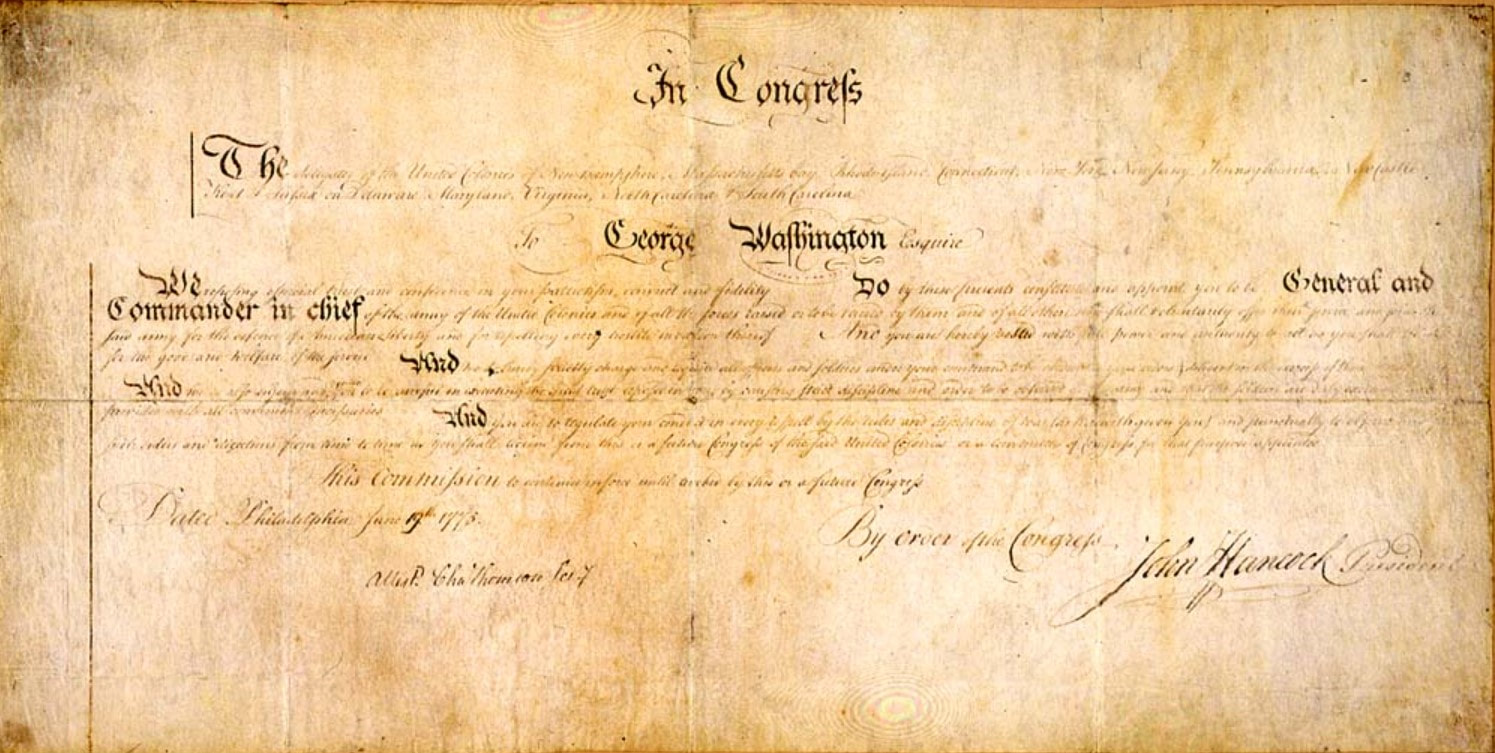 In Congreſs
The delegates of the United Colonies of New Hampshire, Massachusetts bay, Rhode Island, Connecticut, New York, New Jersey, Pennsylvania, New Castle
Kent & Sussex on Delaware, Maryland, Virginia, North Carolina & South Carolina
To George Waſhington Esquire
We reposing especial trust and confidence in your patriotism, conduct and fidelity Do by these presents constitute and appoint you to be General and
Commander in chief of the army of the United Colonies and of all the forces raised or to be raised by them and of all others who shall voluntarily offer their service and
said army for the defence of American Liberty and for repelling every hostile invasion thereof And you are hereby vested with full power and authority to act as you shall
for the good and Welfare of the service
And we do hereby strictly charge and require all officers and soldiers under your command to be obedient
And we also enjoin and require you to be careful in executing the great trust reposed in you, by causing strict discipline and order to be observed in the army and that the soldiers are duly exercised and
provided with all convenient necessaries
And you are to regulate your conduct in every respect by the rules and discipline of war (as herewith given you) and punctually to observe and
such orders and directions from time to time as you shall receive from this or a future Congress of the said United Colonies or a committee of Congress for that purpose appointed
This Commiſsion to continue in force until revoked by this or a future Congreſs
Dated Philadelphia June 19th 1775.
By order of the Congreſs
John Hancock President
Attest. Cha Thomson Secy